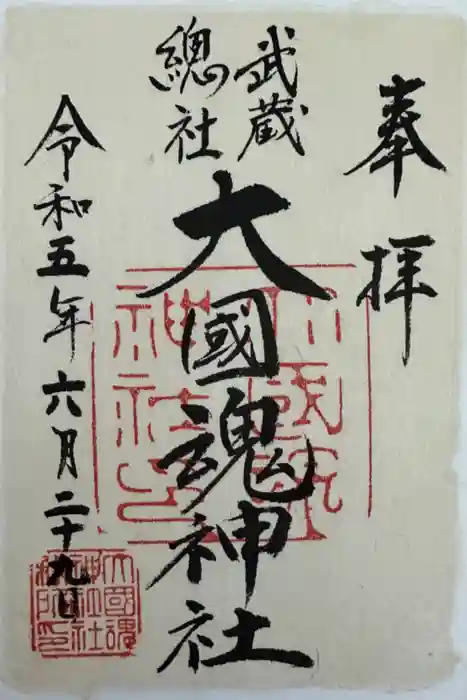 奉拝
武蔵
總社
大國魂神社
令和五年六月二十九日